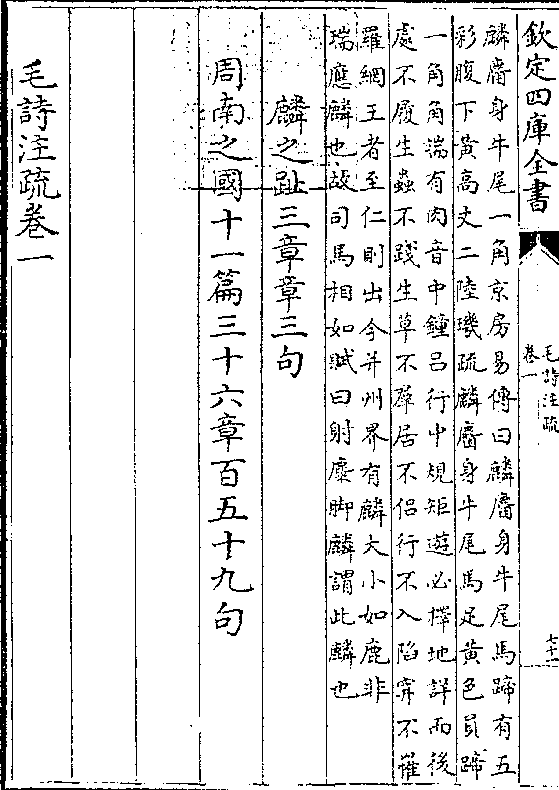 欽定四庫全書
毛詩注疏
卷一
七十一
麟麕身牛尾一角京房易傳曰麟麕身牛尾馬蹄有五
彩腹下黃高丈二陸璣疏麟麕身牛尾馬足黃色員蹄
一角角端有肉音中鐘呂行中規矩遊必擇地詳而後
處不履生蟲不踐生草不羣居不侶行不入陷穽不罹
羅網王者至仁則出今并州界有麟大小如鹿非
瑞應麟也故司馬相如賦曰射麋脚麟謂此麟也
麟之趾三章章三句
周南之國十一篇三十六章百五十九句
毛詩注疏卷一